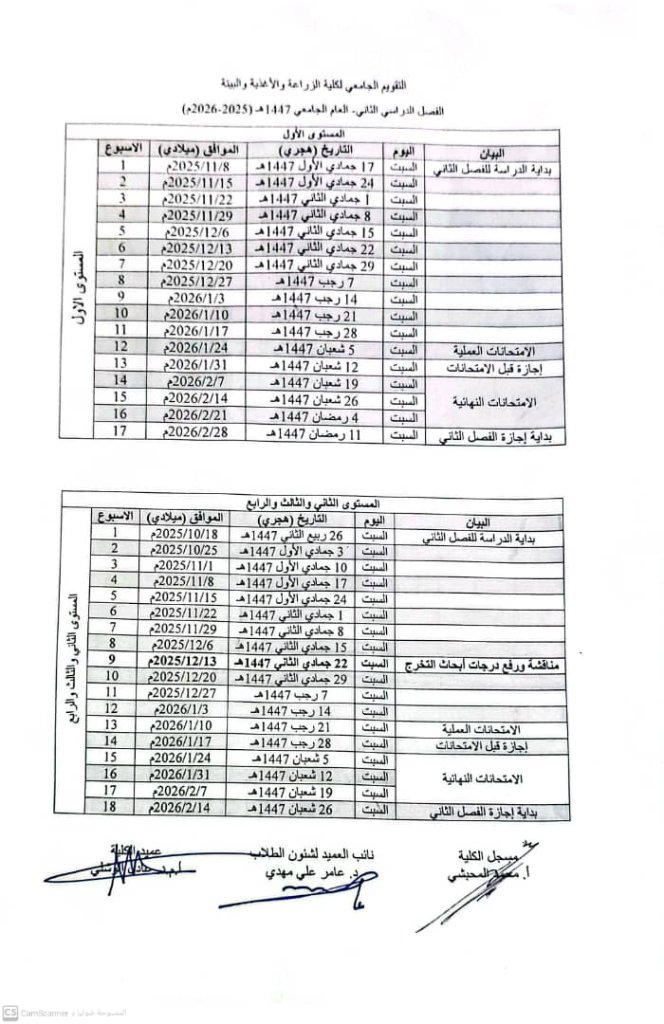 التقويم الجامعي لكلية الزراعة والأغذية والبيئة
الفصل الدراسي الثاني- العام الجامعي 1447هـ (2025-2026م)
المستوى الأول
البيان اليوم التاريخ (هجري) الموافق (ميلادي) الاسبوع
بداية الدراسة للفصل الثاني السبت 17 جمادي الأول 1447هـ 2025/11/8م 1
السبت 24 جمادي الأول 1447هـ 2025/11/15م 2
السبت 1 جمادي الثاني 1447هـ 2025/11/22م 3
السبت 8 جمادي الثاني 1447هـ 2025/11/29م 4
السبت 15 جمادي الثاني 1447هـ 2025/12/6م 5
السبت 22 جمادي الثاني 1447هـ 2025/12/13م 6
السبت 29 جمادي الثاني 1447هـ 2025/12/20م 7
السبت 7 رجب 1447هـ 2025/12/27م 8
السبت 14 رجب 1447هـ 2026/1/3م 9
السبت 21 رجب 1447هـ 2026/1/10م 10
السبت 28 رجب 1447هـ 2026/1/17م 11
الامتحانات العملية السبت 5 شعبان 1447هـ 2026/1/24م 12
إجازة قبل الامتحانات السبت 12 شعبان 1447هـ 2026/1/31م 13
السبت 19 شعبان 1447هـ 2026/2/7م 14
الامتحانات النهائية السبت 26 شعبان 1447هـ 2026/2/14م 15
السبت 4 رمضان 1447هـ 2026/2/21م 16
بداية إجازة الفصل الثاني السبت 11 رمضان 1447هـ 2026/2/28م 17
المستوى الاول
المستوى الثاني والثالث والرابع
البيان اليوم التاريخ (هجري) الموافق (ميلادي) الاسبوع
بداية الدراسة للفصل الثاني السبت 26 ربيع الثاني 1447هـ 2025/10/18م 1
السبت 3 جمادي الأول 1447هـ 2025/10/25م 2
السبت 10 جمادي الأول 1447هـ 2025/11/1م 3
السبت 17 جمادي الأول 1447هـ 2025/11/8م 4
السبت 24 جمادي الأول 1447هـ 2025/11/15م 5
السبت 1 جمادي الثاني 1447هـ 2025/11/22م 6
السبت 8 جمادي الثاني 1447هـ 2025/11/29م 7
السبت 15 جمادي الثاني 1447هـ 2025/12/6م 8
مناقشة ورفع درجات أبحاث التخرج السبت 22 جمادي الثاني 1447هـ 2025/12/13م 9
السبت 29 جمادي الثاني 1447هـ 2025/12/20م 10
السبت 7 رجب 1447هـ 2025/12/27م 11
السبت 14 رجب 1447هـ 2026/1/3م 12
الامتحانات العملية السبت 21 رجب 1447هـ 2026/1/10م 13
إجازة قبل الامتحانات السبت 28 رجب 1447هـ 2026/1/17م 14
السبت 5 شعبان 1447هـ 2026/1/24م 15
الامتحانات النهائية السبت 12 شعبان 1447هـ 2026/1/31م 16
السبت 19 شعبان 1447هـ 2026/2/7م 17
بداية إجازة الفصل الثاني السبت 26 شعبان 1447هـ 2026/2/14م 18
المستوى الثاني والثالث والرابع
مسجل الكلية نائب العميد لشئون الطلاب عميد الكلية
أ. محمد المحبشي د. عامر علي مهدي أ.م.د. عادل
الممسوحة ضوئيا بـ CamScanner
CS